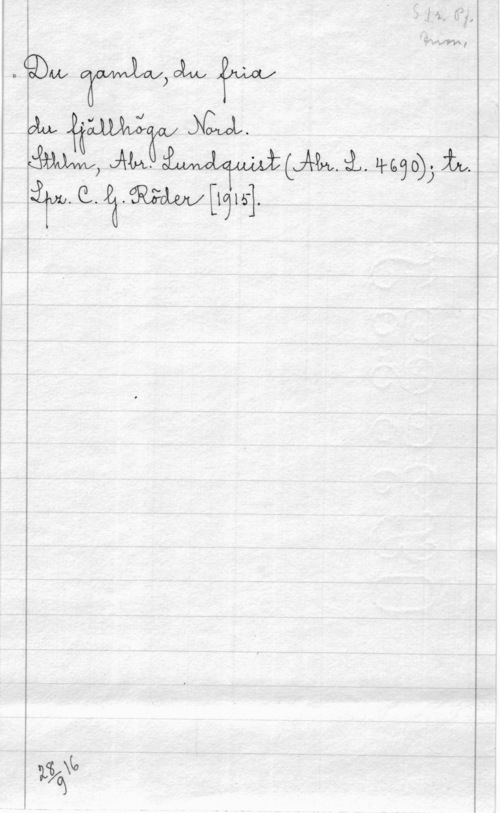 Du gamla, du fria
du fjällhöga Nord.
Sthlm, Abr. Lundquist (Abr. L. 4690); tr.
Lpz. C. G. Röder [1915].
28/9 16